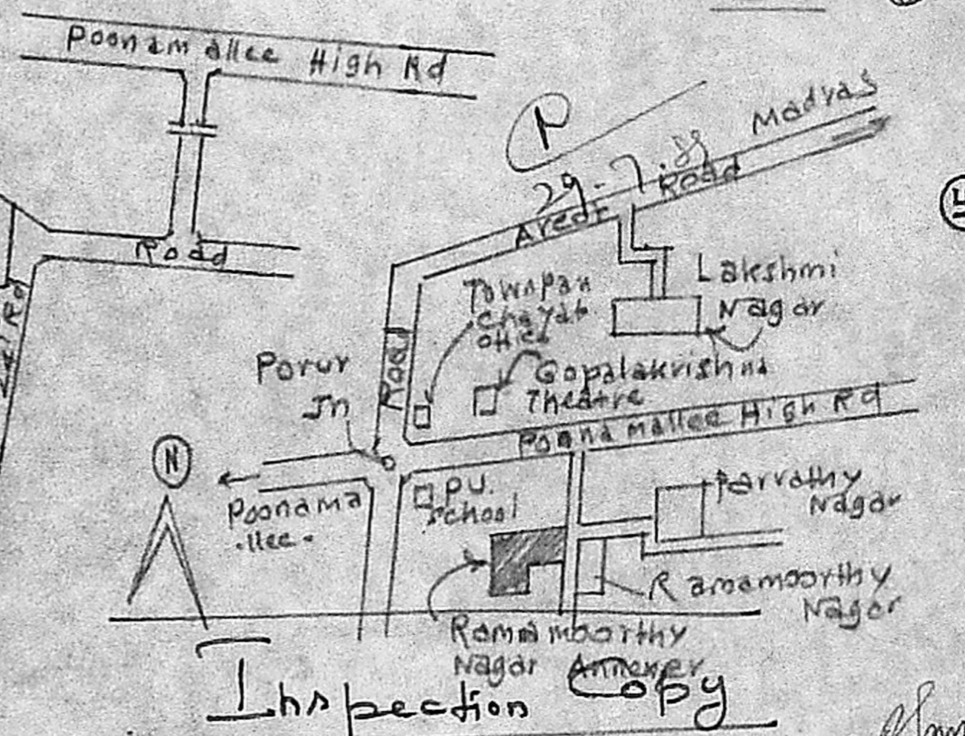 Poonamallee High Rd
Madras
P
29-7-88
Arcot Road
Road
Lakshmi
Nagar
Townpan
chayat
office
Road
Porur
Jn
Gopalakrishna
Theatre
Poonamallee High Rd
N
Poonama
llee.
P.U.
School
Parvathy
Nagar
Ramamoorthy
Nagar
Ramamoorthy
Nagar Annexer
Inspection Copy